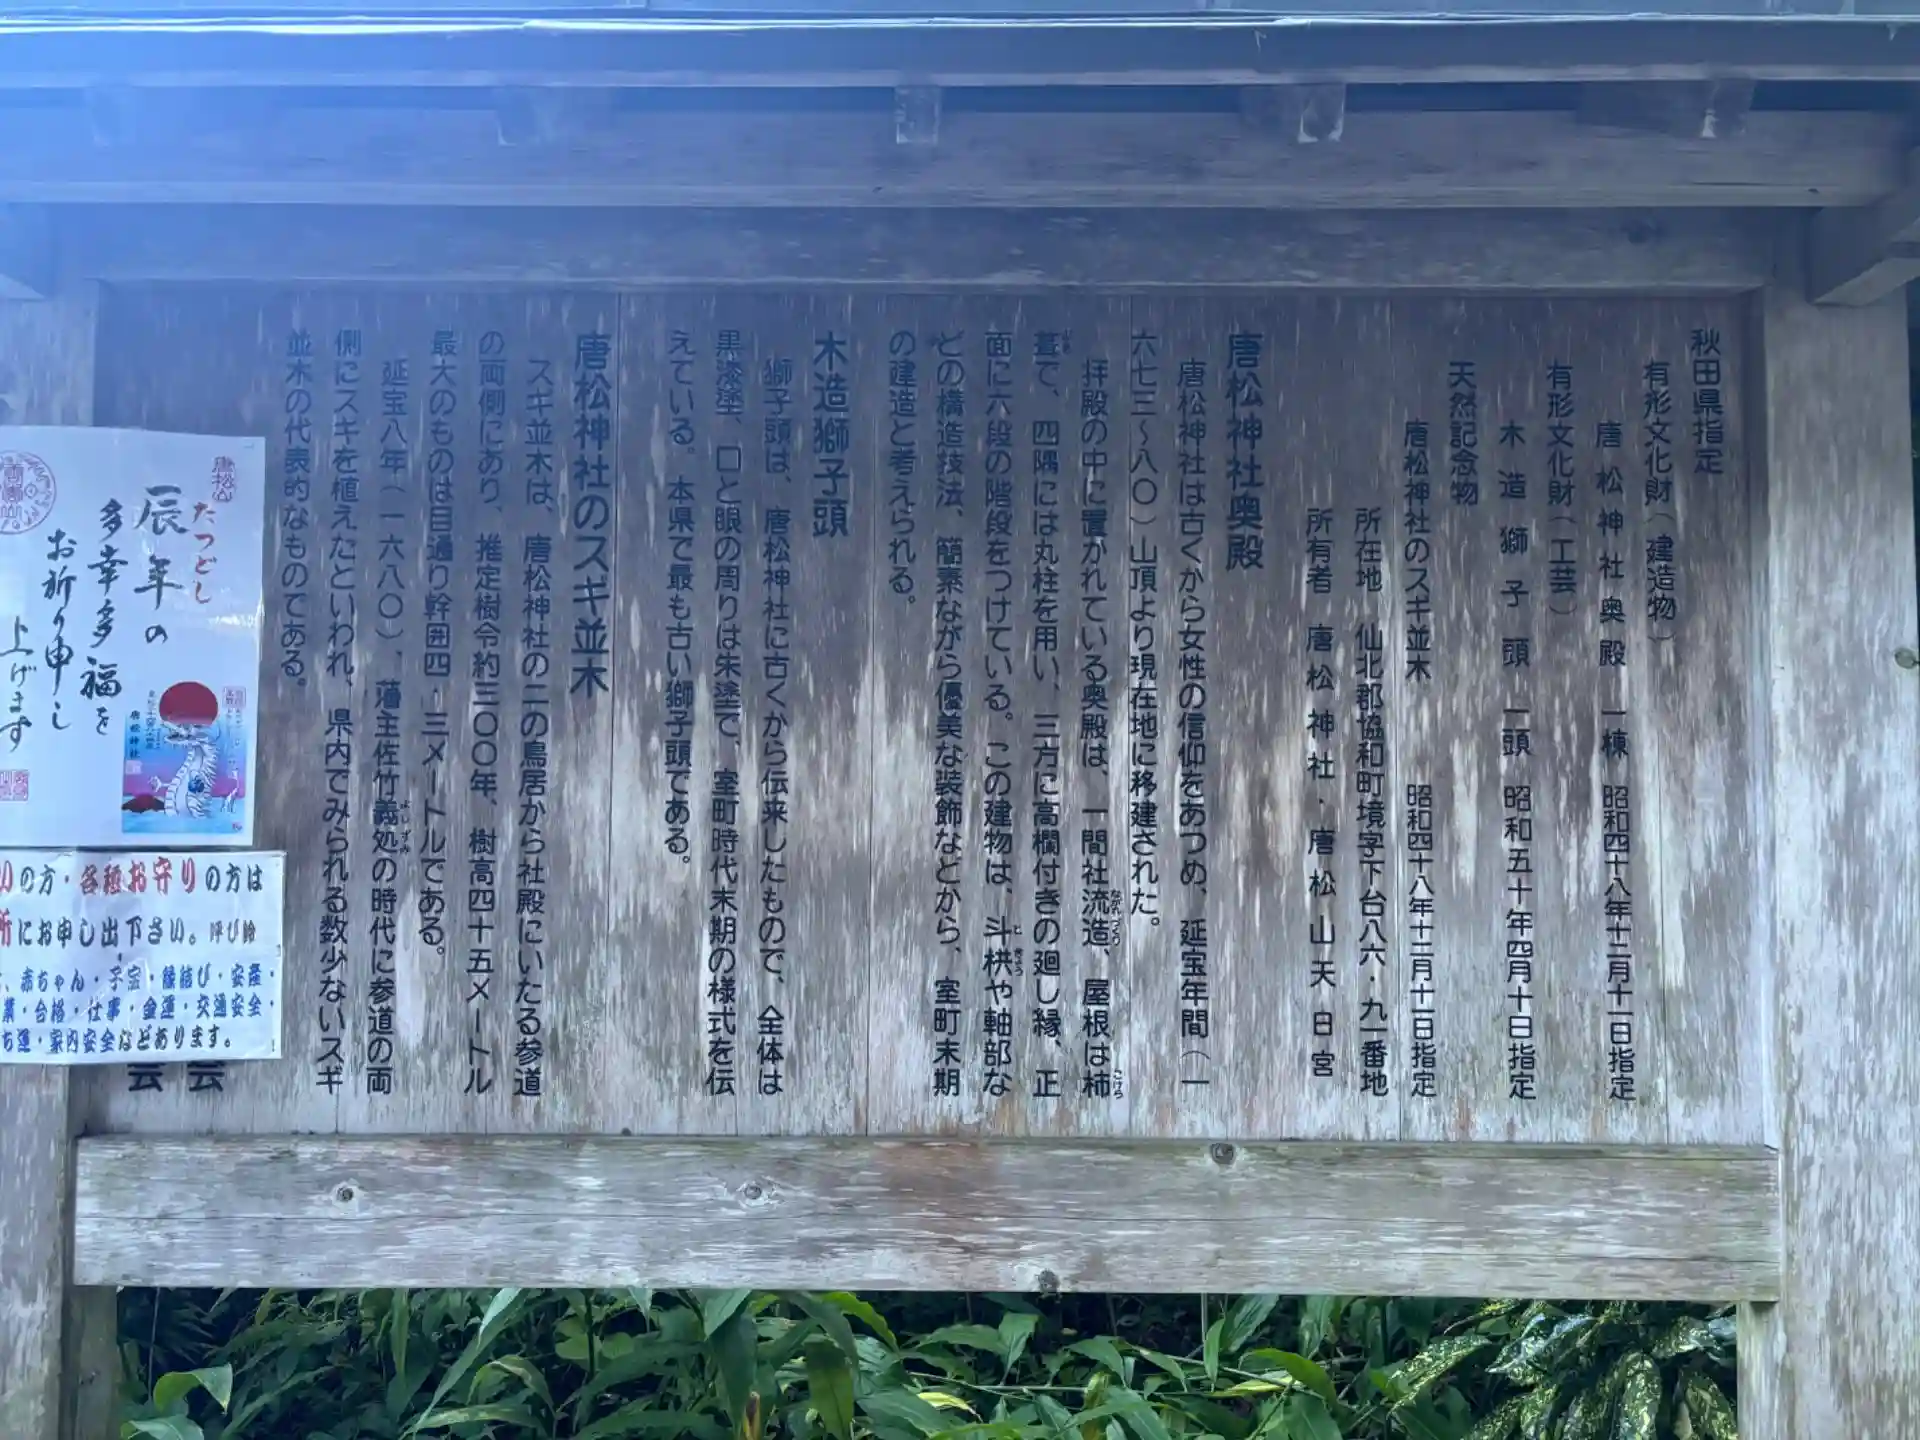 秋田県指定
有形文化財（建造物）
唐松神社奥殿　一棟　昭和四十八年十二月十一日指定
有形文化財（工芸）
木造獅子頭　一頭　昭和五十年四月十日指定
天然記念物
唐松神社のスギ並木　昭和四十八年十二月十一日指定
所在地　仙北郡協和町境字下台八六・九一番地
所有者　唐松神社・唐松山天日宮
唐松神社奥殿
唐松神社は古くから女性の信仰をあつめ、延宝年間（一
六七三〜八〇）山頂より現在地に移建された。
拝殿の中に置かれている奥殿は、一間社流造、屋根は柿
葺で、四隅には丸柱を用い、三方に高欄付きの廻し縁、正
面に六段の階段をつけている。この建物は、斗栱や軸部な
どの構造技法、簡素ながら優美な装飾などから、室町末期
の建造と考えられる。
木造獅子頭
獅子頭は、唐松神社に古くから伝来したもので、全体は
黒漆塗、口と眼の周りは朱塗で、室町時代末期の様式を伝
えている。本県で最も古い獅子頭である。
唐松神社のスギ並木
スギ並木は、唐松神社の二の鳥居から社殿にいたる参道
の両側にあり、推定樹令約三〇〇年、樹高四十五メートル
最大のものは目通り幹囲四・三メートルである。
延宝八年（一六八〇）、藩主佐竹義処の時代に参道の両
側にスギを植えたといわれ、県内でみられる数少ないスギ
並木の代表的なものである。
会
会
唐松山
たつどし
辰年の
多幸多福を
お祈り申し
上げます
唐松神社
いの方・各種お守りの方は
所にお申し出下さい。呼び鈴
、赤ちゃん・子宝・縁結び・安産・
業・合格・仕事・金運・交通安全・
ち運・家内安全などあります。